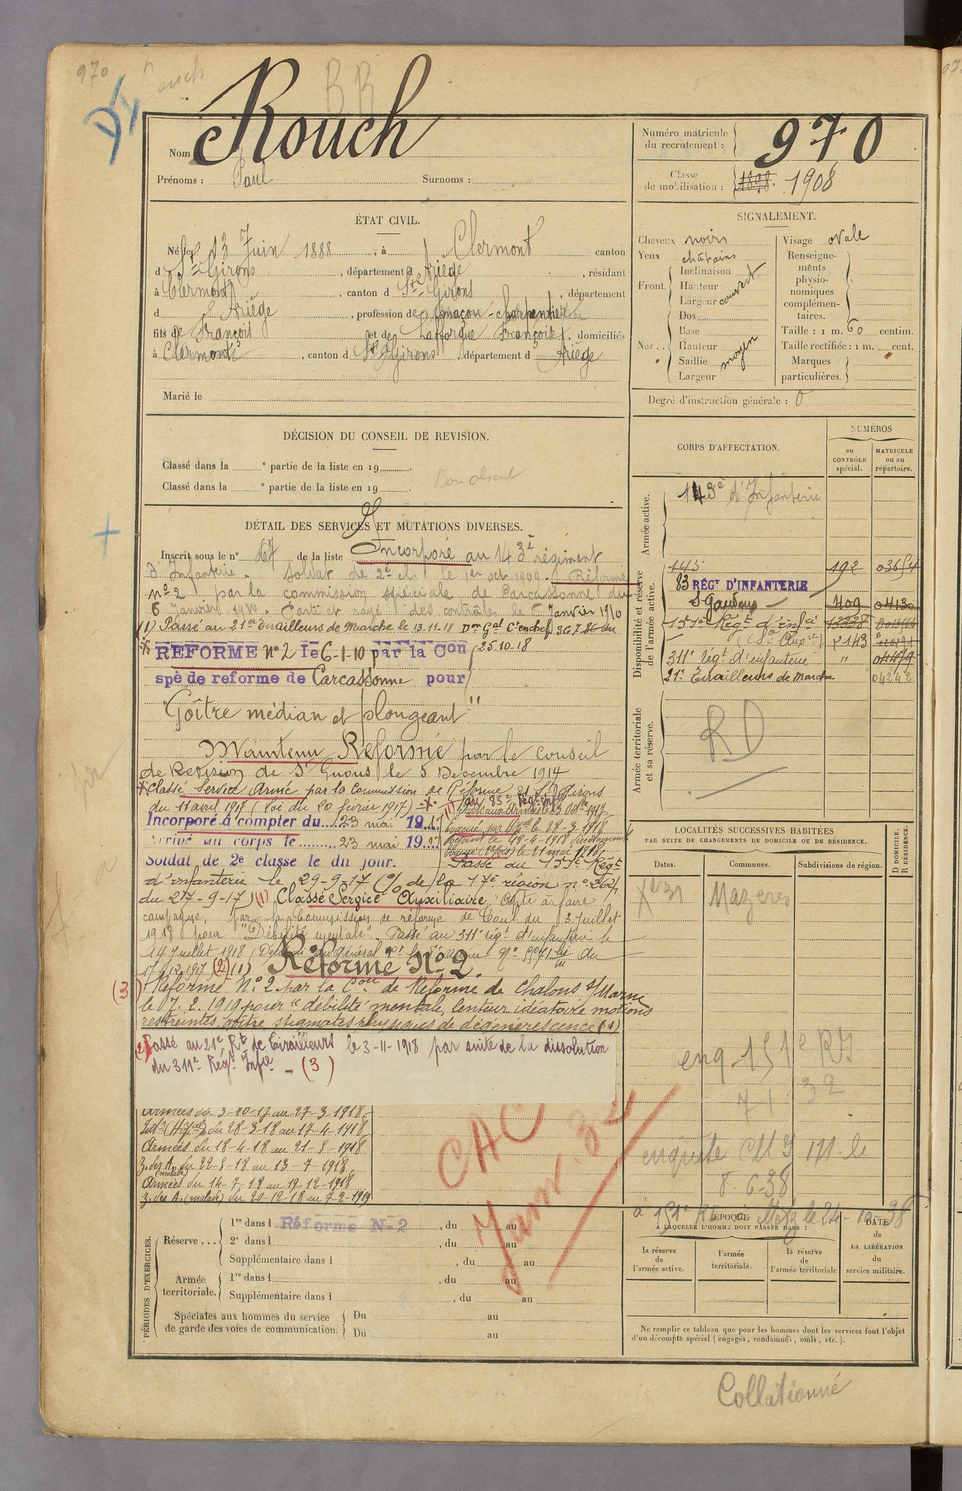 970
Rouch
Nom
Prénoms : Paul Surnoms :
Numéro matricule du recrutement : 970
Classe de mobilisation : 1908
ÉTAT CIVIL.
Né le 13 Juin 1888, à Clermont canton
d St Girons, département d Ariège, résidant
à Clermont, canton d St Girons, département
d Ariège, profession de maçon-charpentier
fils de François et de Lafforgue Françoise, domiciliés
à Clermont, canton d St Girons, département d Ariège
Marié le
SIGNALEMENT.
Cheveux noirs
Yeux châtains
Front Inclinaison
Hauteur
Largeur couvert
Nez Dos
Base
Hauteur moyen
Saillie
Largeur
Visage ovale
Renseignements physionomiques complémentaires.
Taille : 1 m. 60 centim.
Taille rectifiée : 1 m. cent.
Marques particulières.
Degré d'instruction générale : 0
DÉCISION DU CONSEIL DE REVISION.
Classé dans la e partie de la liste en 19
Classé dans la e partie de la liste en 19
Bon absent
CORPS D'AFFECTATION.
NUMÉROS
au CONTRÔLE spécial.
MATRICULE ou au répertoire.
Armée active.
143e d'Infanterie
Disponibilité et réserve de l'armée active.
145 192
83 RÉGt D'INFANTERIE
St Gaudens 409 04130
151e Régt d'infie
(Sce Auxre) 2143
311e régt d'infanterie "
21e Tirailleurs de Marche 04242
Armée territoriale et sa réserve.
RD
DÉTAIL DES SERVICES ET MUTATIONS DIVERSES.
Inscrit sous le n° 67 de la liste Incorporé au 143e régiment
d'Infanterie. Soldat de 2e cl. le 1er oct 1909. Réformé
n° 2 par la commission spéciale de Carcassonne du
6 Janvier 1910. Parti et rayé des contrôles le 6 Janvier 1910
(1) Passé au 21e Tirailleurs de Marche le 13.11.18 Don Gal C' en chef 3678 du
25-10-18
REFORME N°2 le 6-1-10 par la Con
spè de reforme de Carcassonne pour
"Goître médian et plongeant"
Maintenu Réformé par le conseil
de Revision de St Girons le 5 Décembre 1914
Classé Service Armé par la Commission de Réforme de St Girons
du 11 avril 1917 (Loi du 20 février 1917)
Incorporé à compter du 23 mai 1917
Arrivé au corps le 23 mai 1917
Soldat de 2e classe le du jour.
Passé au 151e Régt
d'infanterie le 29-9-17 (O/ de la 17e région n°
du 27-9-17) (1) Classé Service Auxiliaire, apte à faire
campagne, par la Commission de réforme de du 3 Juillet
1918 pour "Débilité mentale". Passé au 311e régt d'infanterie le
19 Juillet 1918
Réformé N° 2.
(3) Réformé N°2 par la Con de Réforme de Chalons s/ Marne
le 7.2.1919 pour "débilité mentale, lenteur idéatoire, notions
restreintes, goitre, stigmates physiques de dégénérescence"
(2) Passé au 21e Rt de Tirailleurs le 3-11-1918 par suite de la dissolution
du 311e Régt Infie - (3)
Armées du 3-10-17 au 27-3-1918
Intr (Hopal) du 28-3-18 au 17-4-1918
Armées du 18-4-18 au 21-5-1918
Z. des A. (malade) du 22-5-18 au 13-7-1918
Armées du 14-7-18 au 19-12-1918
Z. des A. (malade) du 20-12-18 au 7-2-1919
CAC
Janv 32
LOCALITÉS SUCCESSIVES HABITÉES
PAR SUITE DE CHANGEMENTS DE DOMICILE OU DE RÉSIDENCE.
Dates. Communes. Subdivisions de région.
D DOMICILE. R RÉSIDENCE.
Xbre 31 Mazeres
enq. 151e RI
7-1-32
enquete CMI 171 le
8.6.38
à 151e RI Metz le 24-10-38
PÉRIODES D'EXERCICES.
Réserve ... 1re dans l Réformé N°2, du au
2e dans l, du au
Supplémentaire dans l, du au
Armée territoriale. 1re dans l, du au
Supplémentaire dans l, du au
Spéciales aux hommes du service de garde des voies de communication. Du au
Du au
ÉPOQUE
À LAQUELLE L'HOMME DOIT PASSER DANS :
la réserve de l'armée active.
l'armée territoriale.
la réserve de l'armée territoriale
DATE de LA LIBÉRATION du service militaire.
Ne remplir ce tableau que pour les hommes dont les services font l'objet
d'un décompte spécial (engagés, condamnés, omis, etc.).
Collationné